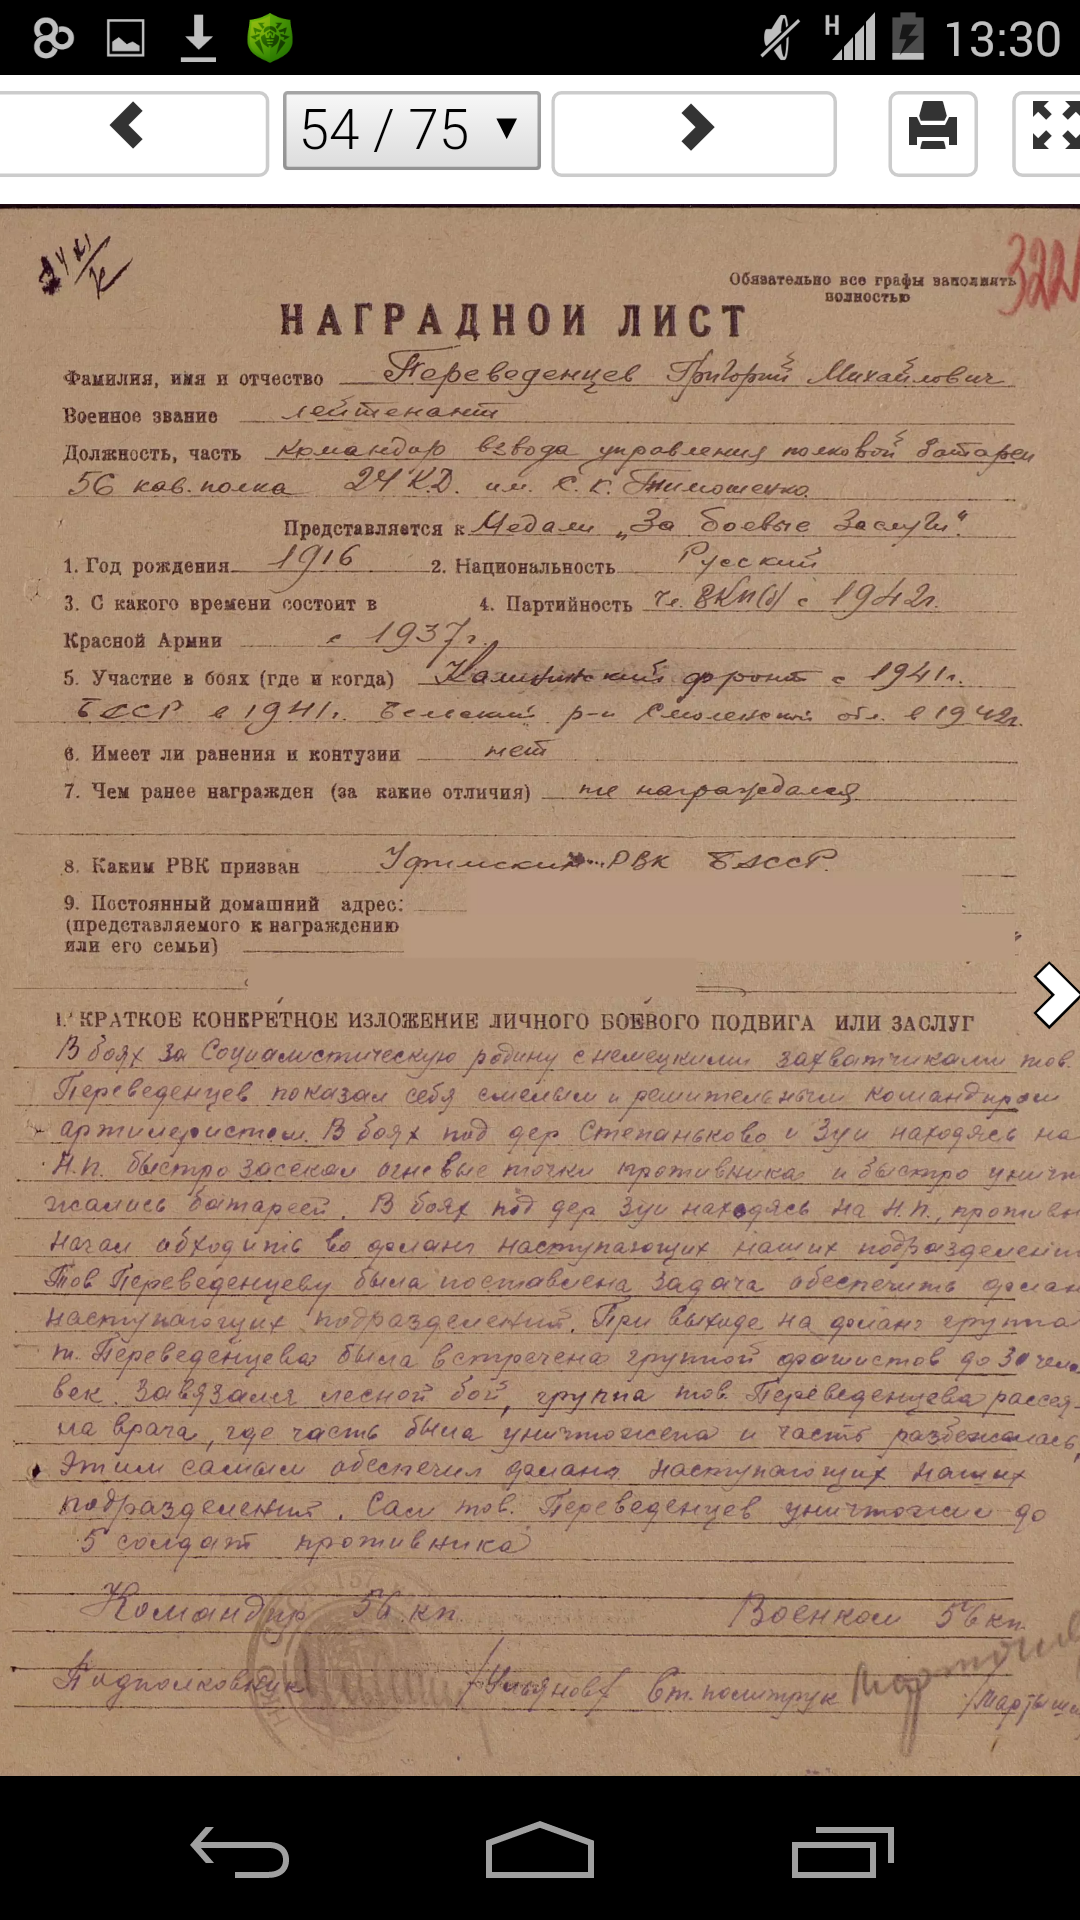 H 13:30
54 / 75
322
Обязательно все графы заполнять
полностью
НАГРАДНОЙ ЛИСТ
Фамилия, имя и отчество Переведенцев Григорий Михайлович
Военное звание лейтенант
Должность, часть командир взвода управления полковой батареи
56 кав. полка 24 К.Д. им. С. К. Тимошенко
Представляется к Медали „За боевые Заслуги".
1. Год рождения 1916 2. Национальность Русский
3. С какого времени состоит в 4. Партийность Чл. ВКП(б) с 1942г.
Красной Армии с 1937г.
5. Участие в боях (где и когда) Калининский фронт с 1941г.
в 1941г. Бельский р-н Смоленской обл. в 1942г.
6. Имеет ли ранения и контузии нет
7. Чем ранее награжден (за какие отличия) не награждался
8. Каким РВК призван Уфимским РВК БАССР.
9. Постоянный домашний адрес:
(представляемого к награждению
или его семьи)
1. КРАТКОЕ КОНКРЕТНОЕ ИЗЛОЖЕНИЕ ЛИЧНОГО БОЕВОГО ПОДВИГА ИЛИ ЗАСЛУГ
В боях за Социалистическую родину с немецкими захватчиками тов.
Переведенцев показал себя смелым и решительным командиром
артиллеристом. В боях под дер Степаньково и Зуи находясь на
Н.П. быстро засекал огневые точки противника и быстро уничто
жались батареей. В боях под дер Зуи находясь на Н.П., противн
начал обходить во фланг наступающих наших подразделений
Тов Переведенцеву была поставлена задача обеспечить фланг
наступающих подразделений. При выходе на фланг группа
т. Переведенцева была встречена группой фашистов до 30 чело
век. Завязался лесной бой, группа тов. Переведенцева рассея-
ла врага, где часть была уничтожена и часть разбежалась,
Этим самым обеспечил фланг наступающих наших
подразделений. Сам тов. Переведенцев уничтожил до
5 солдат противника
Командир 56 кп. Военком 56 кп.
Подполковник /Ульянов/ Ст. политрук /Мартыш